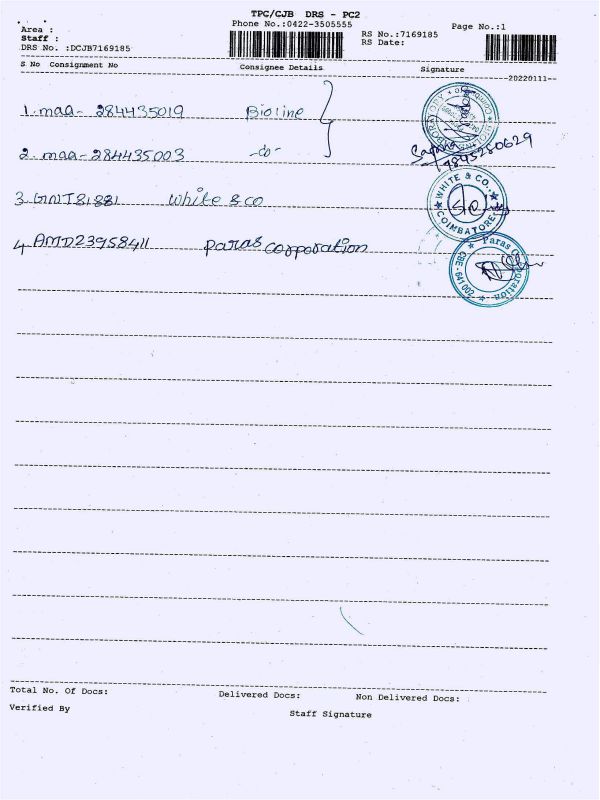 TPC/CJB DRS - PC2
Area :
Phone No.:0422-3505555
Page No.:1
Staff :
RS No.:7169185
DRS No. :DCJB7169185
RS Date:
S No Consignment No Consignee Details Signature
20220111
1. maa- 284435019 Bioline
2. maa- 284435003 -do-
9845250629
3 GNT81881 White & co
WHITE & CO., COIMBATORE
4 AMD23958411 paras corporation
Paras Corporation CBE - 641 002
Total No. Of Docs: Delivered Docs: Non Delivered Docs:
Verified By
Staff Signature